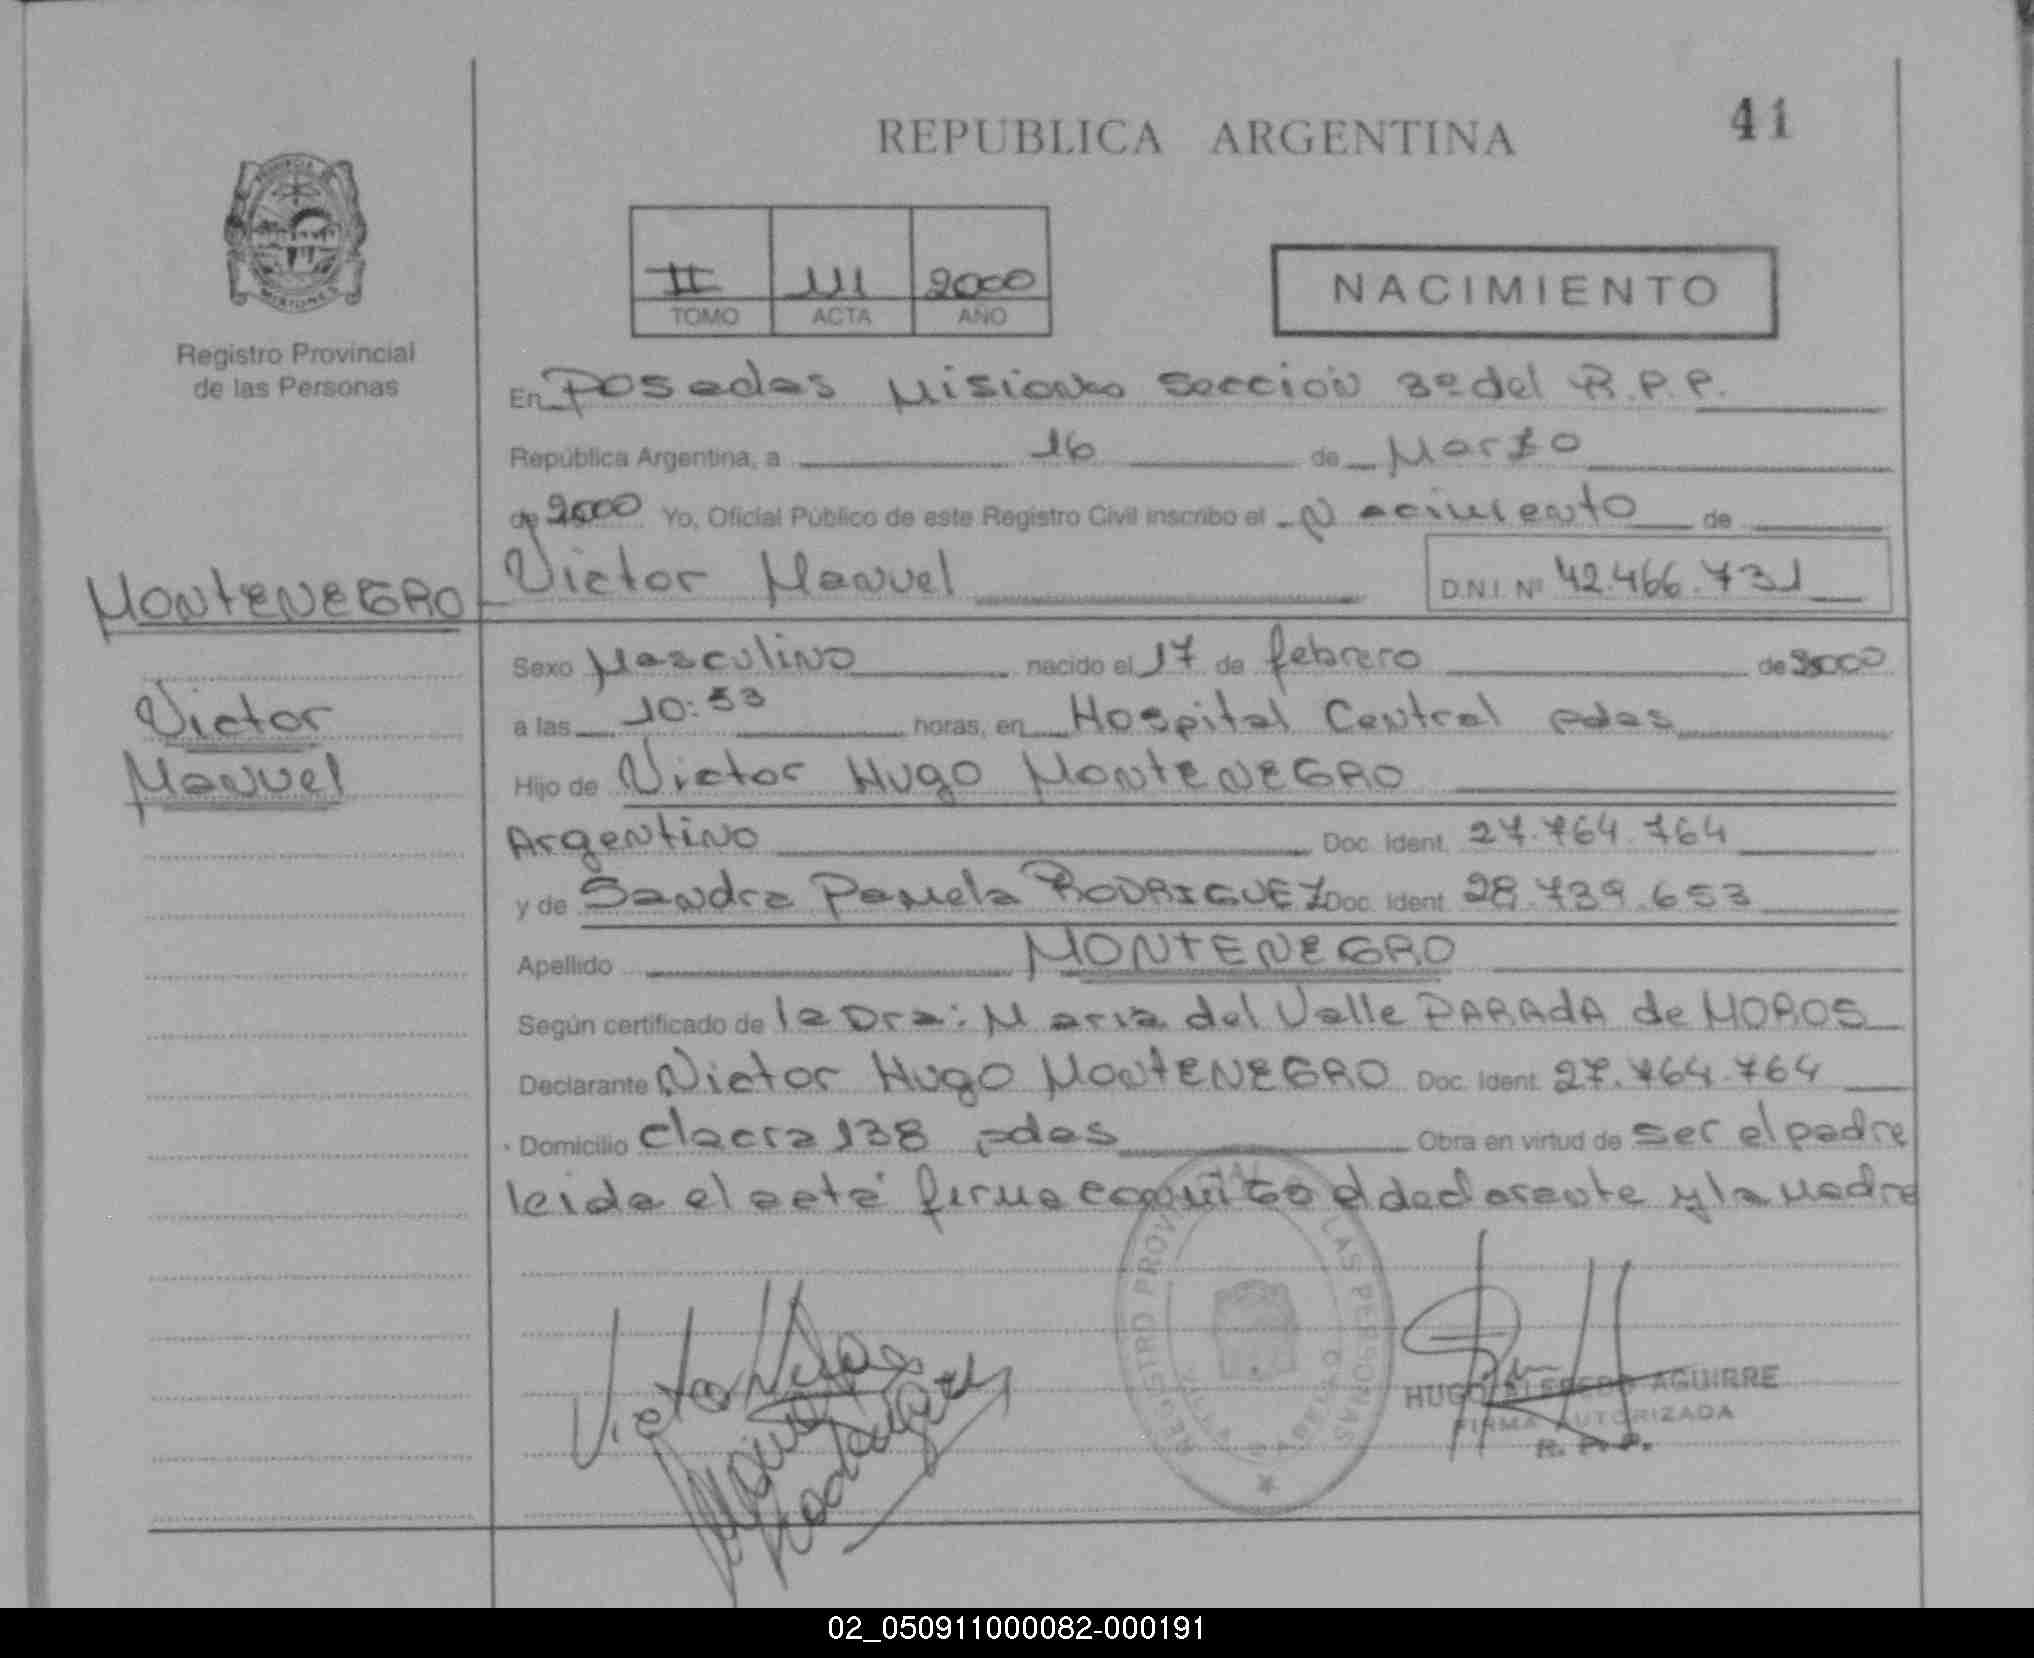 REPUBLICA ARGENTINA
41
II 111 2000
TOMO ACTA AÑO
NACIMIENTO
Registro Provincial
de las Personas
En Posadas Misiones Sección 3º del R.P.P.
República Argentina, a 16 de Marzo
de 2000 Yo, Oficial Público de este Registro Civil inscribo el Nacimiento de
MONTENEGRO Victor Manuel D.N.I. Nº 42.466.731
Sexo Masculino nacido el 17 de febrero de 2000
Victor
Manuel
a las 10:53 horas, en Hospital Central pdas
Hijo de Victor Hugo MONTENEGRO
Argentino Doc. Ident. 27.764.764
y de Sandra Pamela RODRIGUEZ Doc. Ident. 28.739.653
Apellido MONTENEGRO
Según certificado de la Dra: Maria del Valle PARADA de MOROS
Declarante Victor Hugo MONTENEGRO Doc. Ident. 27.764.764
Domicilio chacra 138 pdas Obra en virtud de ser el padre
leida el acta firma conmigo el declarante y la madre
REGISTRO PROVINCIAL LAS PERSONAS
Victor Hugo
Rodriguez
HUGO ALFREDO AGUIRRE
FIRMA AUTORIZADA
R. P. P.
02_050911000082-000191